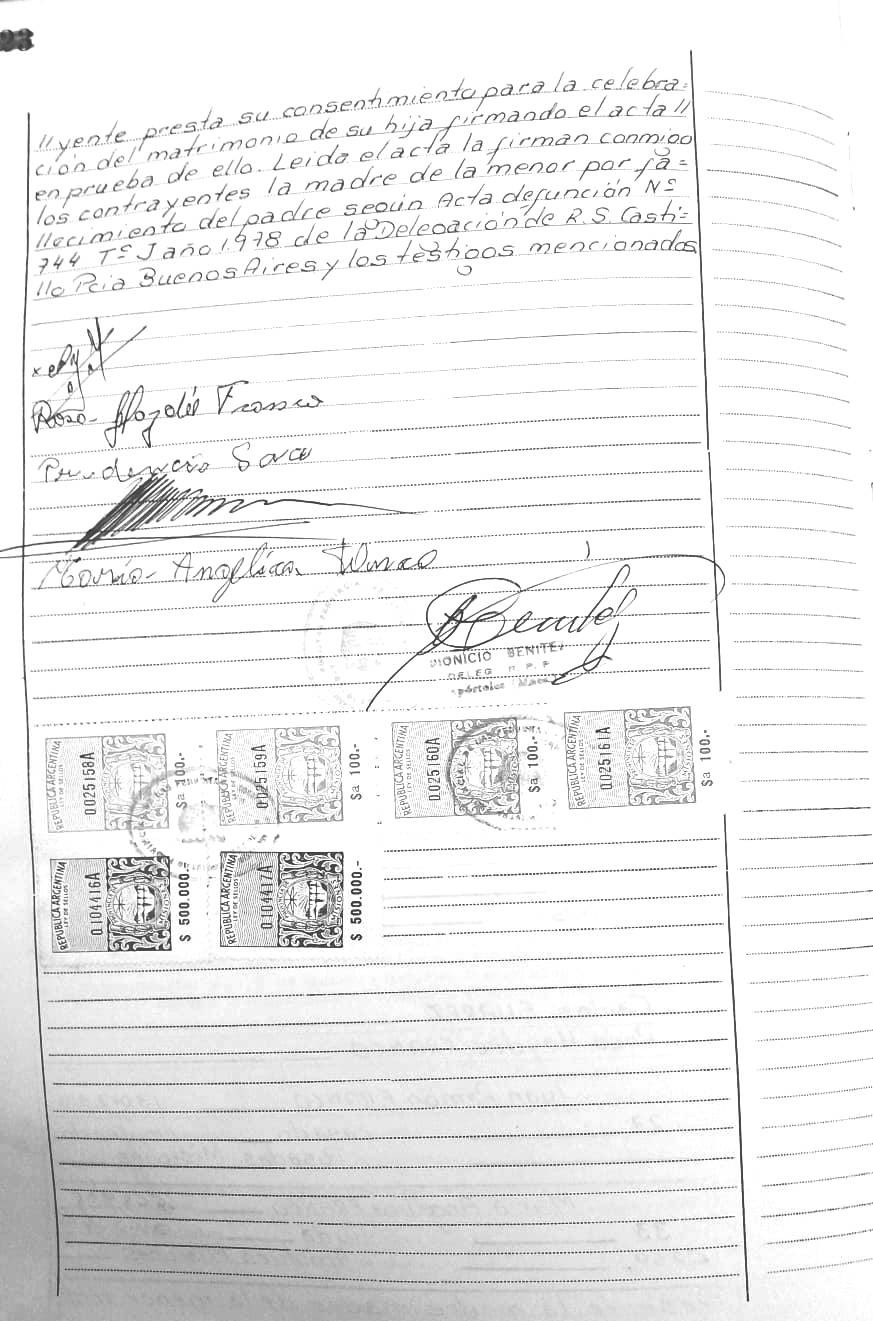 23
//yente presta su consentimiento para la celebra=
ción del matrimonio de su hija firmando el acta //
en prueba de ello. Leida el acta la firman conmigo
los contrayentes la madre de la menor por fa=
llecimiento del padre según Acta defunción Nº
744 Tº J año 1.978 de la Delegación de R.S. Casti=
llo Pcia Buenos Aires y los testigos mencionados
Rosa Franco
Prudencio
Maria Angelica
DIONICIO BENITEZ
DELEG R. P. P
Apóstoles
REPUBLICA ARGENTINA
LEY DE SELLOS
0.025158A
$a 100.-
REPUBLICA ARGENTINA
LEY DE SELLOS
0.025159A
$a 100.-
REPUBLICA ARGENTINA
LEY DE SELLOS
0.025160A
$a 100.-
REPUBLICA ARGENTINA
LEY DE SELLOS
0.025161A
$a 100.-
REPUBLICA ARGENTINA
LEY DE SELLOS
0.104416A
$ 500.000.-
REPUBLICA ARGENTINA
LEY DE SELLOS
0.104417A
$ 500.000.-